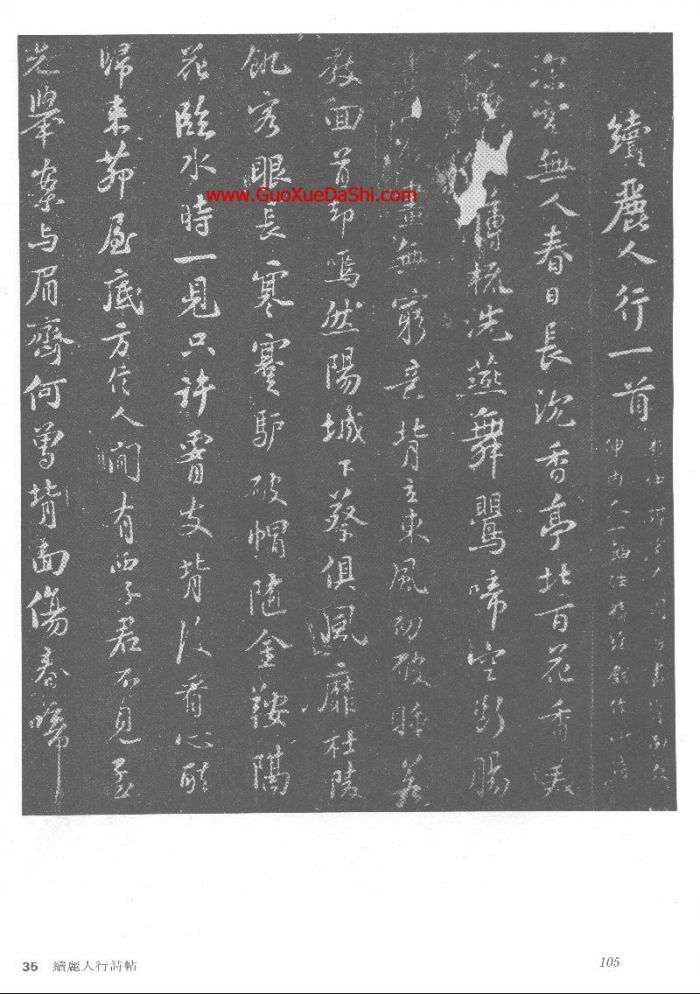 續麗人行一首
深宮無人春日長沈香亭北百花香美
薄梳洗燕舞鶯啼空斷腸
畫無窮意背立東風初破睡若
教回首却嫣然陽城下蔡俱風靡杜陵
飢客眼長寒蹇驢破帽隨金鞍隔
花臨水時一見只許腰支背後看心醉
歸来茆屋底方信人間有西子君不見孟
光舉案与眉齊何曾背面傷春啼
www.GuoXueDaShi.com
35 續麗人行詩帖
105